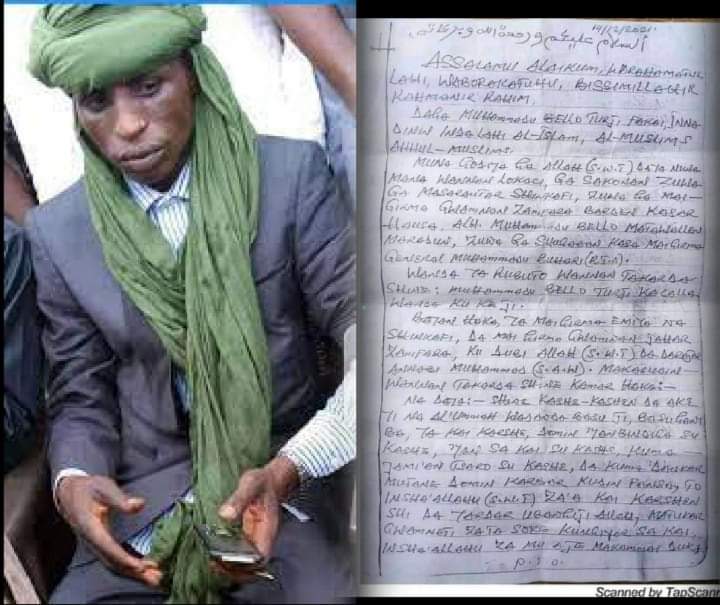 19/12/2021.
السلام عليكم ورحمة الله وبركاته
ASSALAMU ALAIKUM, WARAHAMATUL
LAHI, WABARAKATUHU, BISSIMILLAHIR
RAHMANIR RAHIM.
DAGA MUHAMMADU BELLO TURJI, FAKAI, INNA
DININ INDALLAHI AL-ISLAM, AL-MUSLIMS
AHHUL-MUSLIMS.
MUNA GODIYA GA ALLAH (S.W.T) DA TA NUNA
MANA WANNAN LOKACI, GA SAKONAN ZUWA
GA MASARAUTAR SHINKAFI, ZUWA GA MAI-
GIRMA GWAMNAN ZAMFARA BARDEN KASAR
HAUSA, ALH. MUHAMMADU BELLO MATAWALLEN
MARADUN, ZUWA GA SHUGABAN KASA MAI GIRMA
GENERAL MUHAMMADU BUHARI (RTD).
WANDA YA RUBUTO WANNAN TAKARDA
SHINE: MUHAMMADU BELLO TURJI KACALLA
WANDA KU KE JI.
BAYAN HAKA, YA MAI GIRMA EMIYA NA
SHINKAFI, DA MAI GIRMA GWAMNAN JAHAR
ZAMFARA, KU DUBI ALLAH (S.W.T) DA DARAJAR
ANNABI MUHAMMAD (S.A.W). MAKASUDIN
WANNAN TAKARDA SHINE KAMAR HAKA:-
NA DAYA:- SHINE KASHE-KASHEN DA AKE
YI NA AL'UMMAH WADANDA BASU JI, BASU GANI
BA, YA KAI KARSHE, DOMIN 'YAN BINDIGA SU
KASHE, 'YAN SA KAI SU KASHE, KUMA
JAMI'AN TSARO SU KASHE, DA KUMA DAUKAR
MUTANE DOMIN KARBAR KUDIN FANSA, TO
INSHA'ALLAHU (S.W.T) ZA'A KAI KARSHEN
SHI DA YARDAR UBANGIJI ALLAH, MATUKAR
GWAMNATI ZATA SOKE KUNGIYAR SA KAI,
INSHA'ALLAHU ZA MU AJE MAKAMMAI DUKA
P.T.O.
Scanned by TapScann